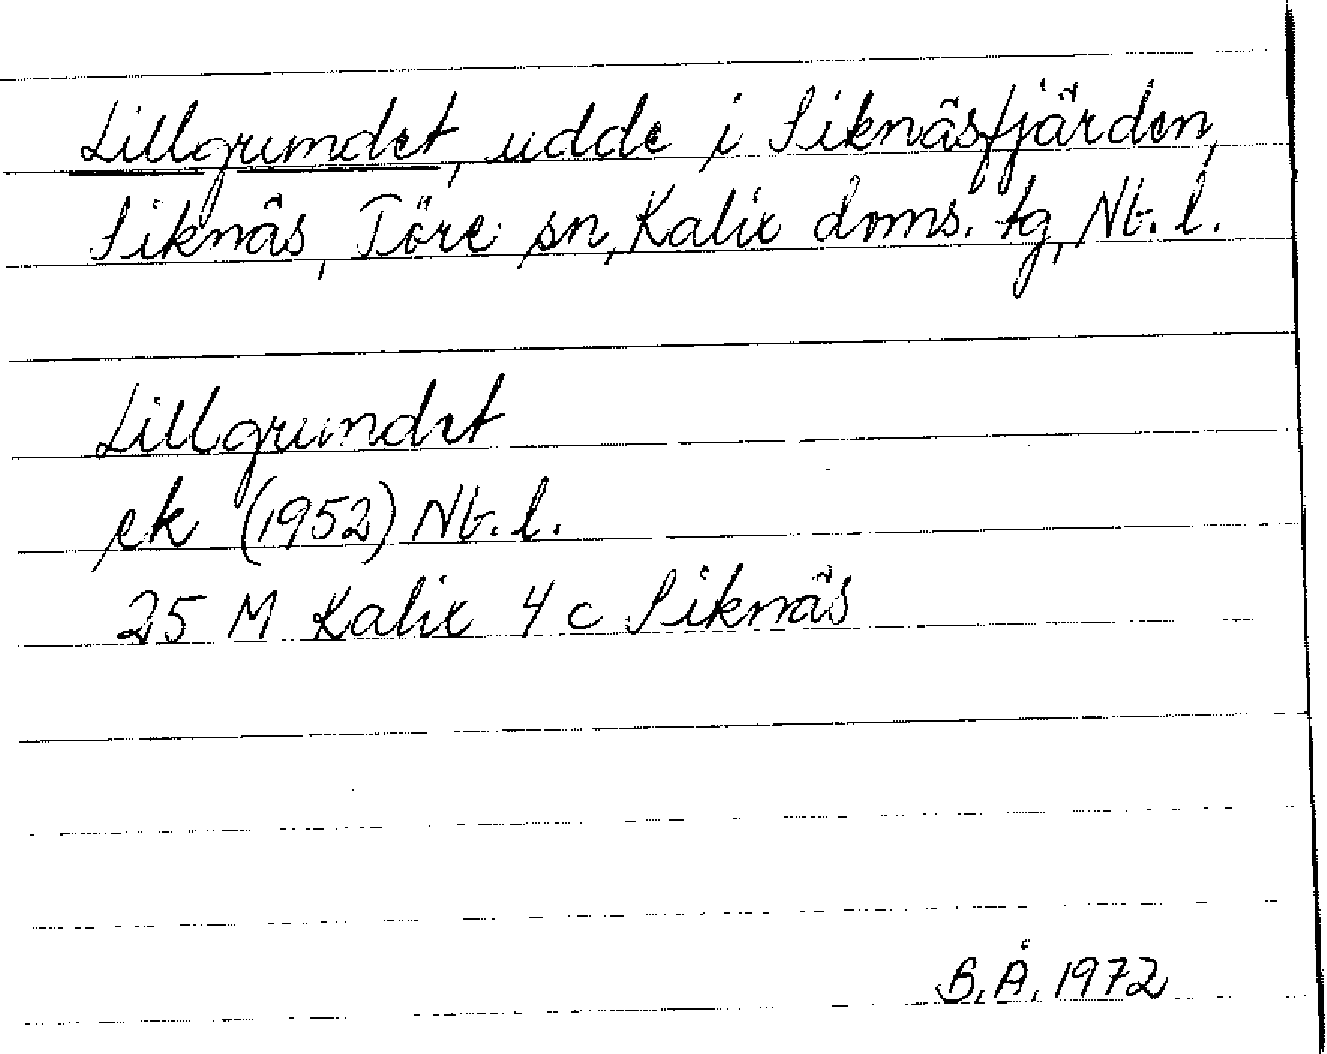 Lillgrundet, udde i Siknäsfjärden,
Siknäs, Töre sn, Kalix doms. tg, Nb. l.
Lillgrundet
ek (1952) Nb. l.
25 M Kalix 4 c Siknäs
B. Å. 1972